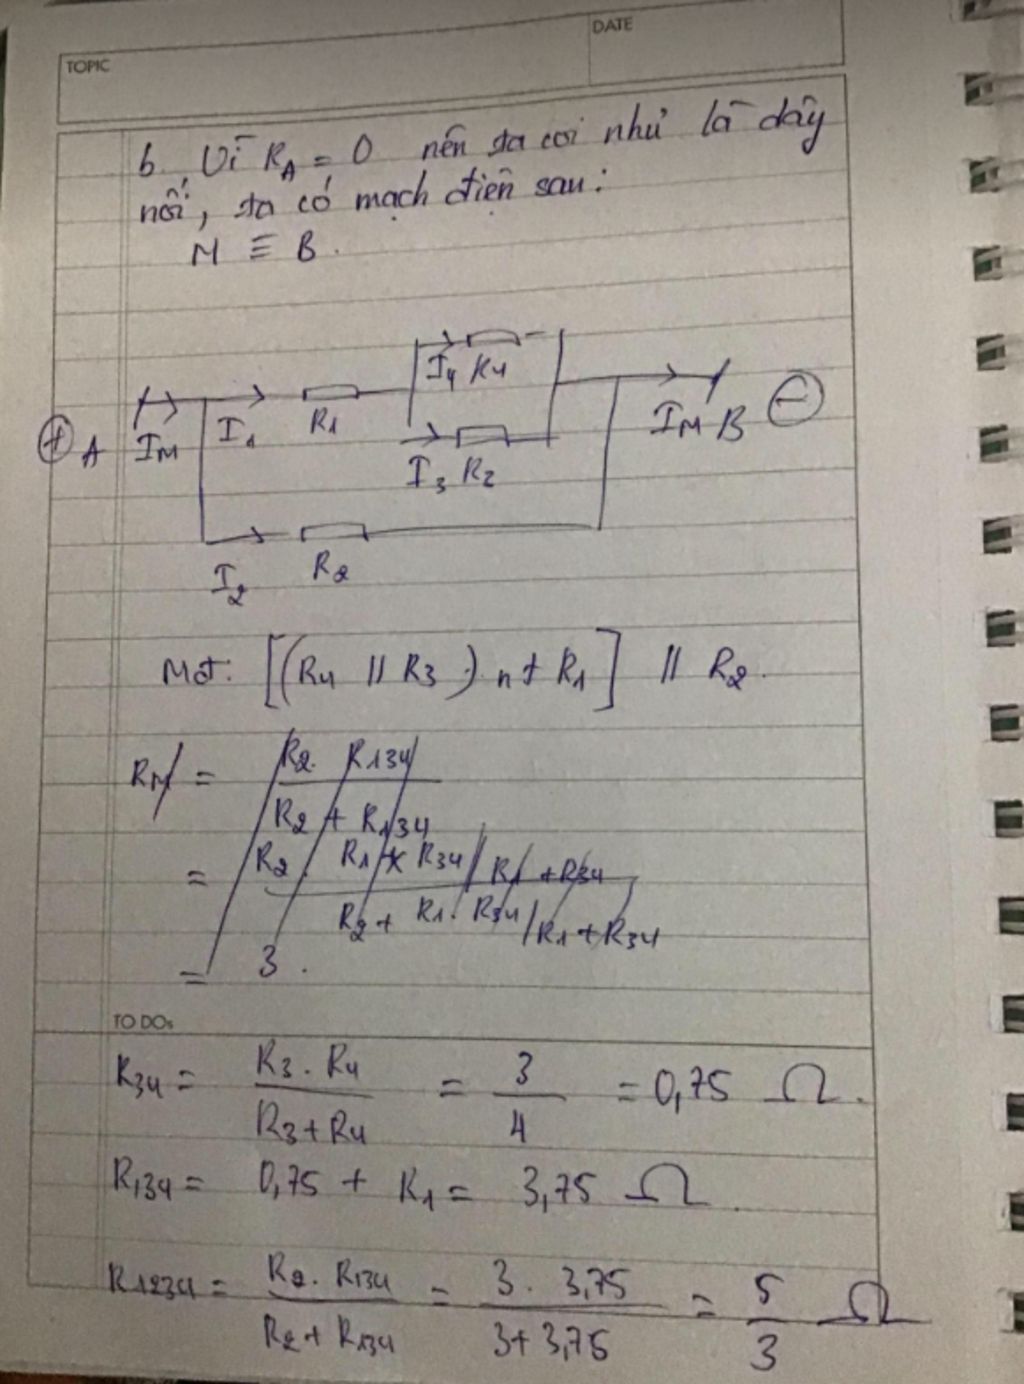 TOPIC
DATE
b, Vì RA = 0 nên ta coi như là dây
nối, ta có mạch điện sau:
M ≡ B.
I4 R4
+ A IM I1 R1 IM B -
I3 R2
I2 R2
Mđ: [(R4 // R3) nt R1] // R2.
RM = R2. R134 / R2 + R134
= R2. R1 x R34 / R1 + R34 / R2 + R1. R34 / R1 + R34
= 3.
TO DOs
R34 = R3. R4 / R3 + R4 = 3 / 4 = 0,75 Ω.
R134 = 0,75 + R1 = 3,75 Ω.
R1234 = R2. R134 / R2 + R134 = 3. 3,75 / 3 + 3,75 = 5 / 3 Ω